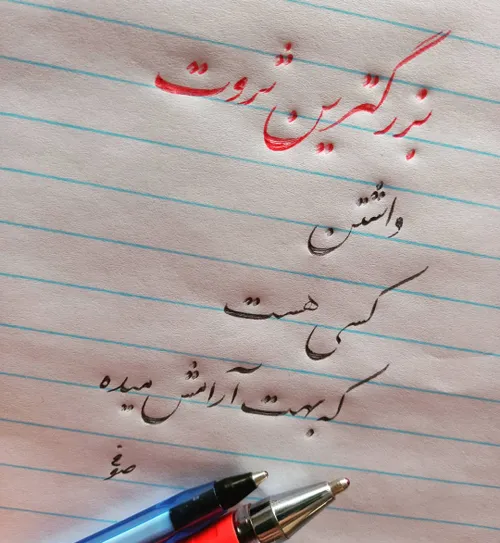 بزرگترین ثروت
داشتن
کسی هست
که بهت آرامش میده